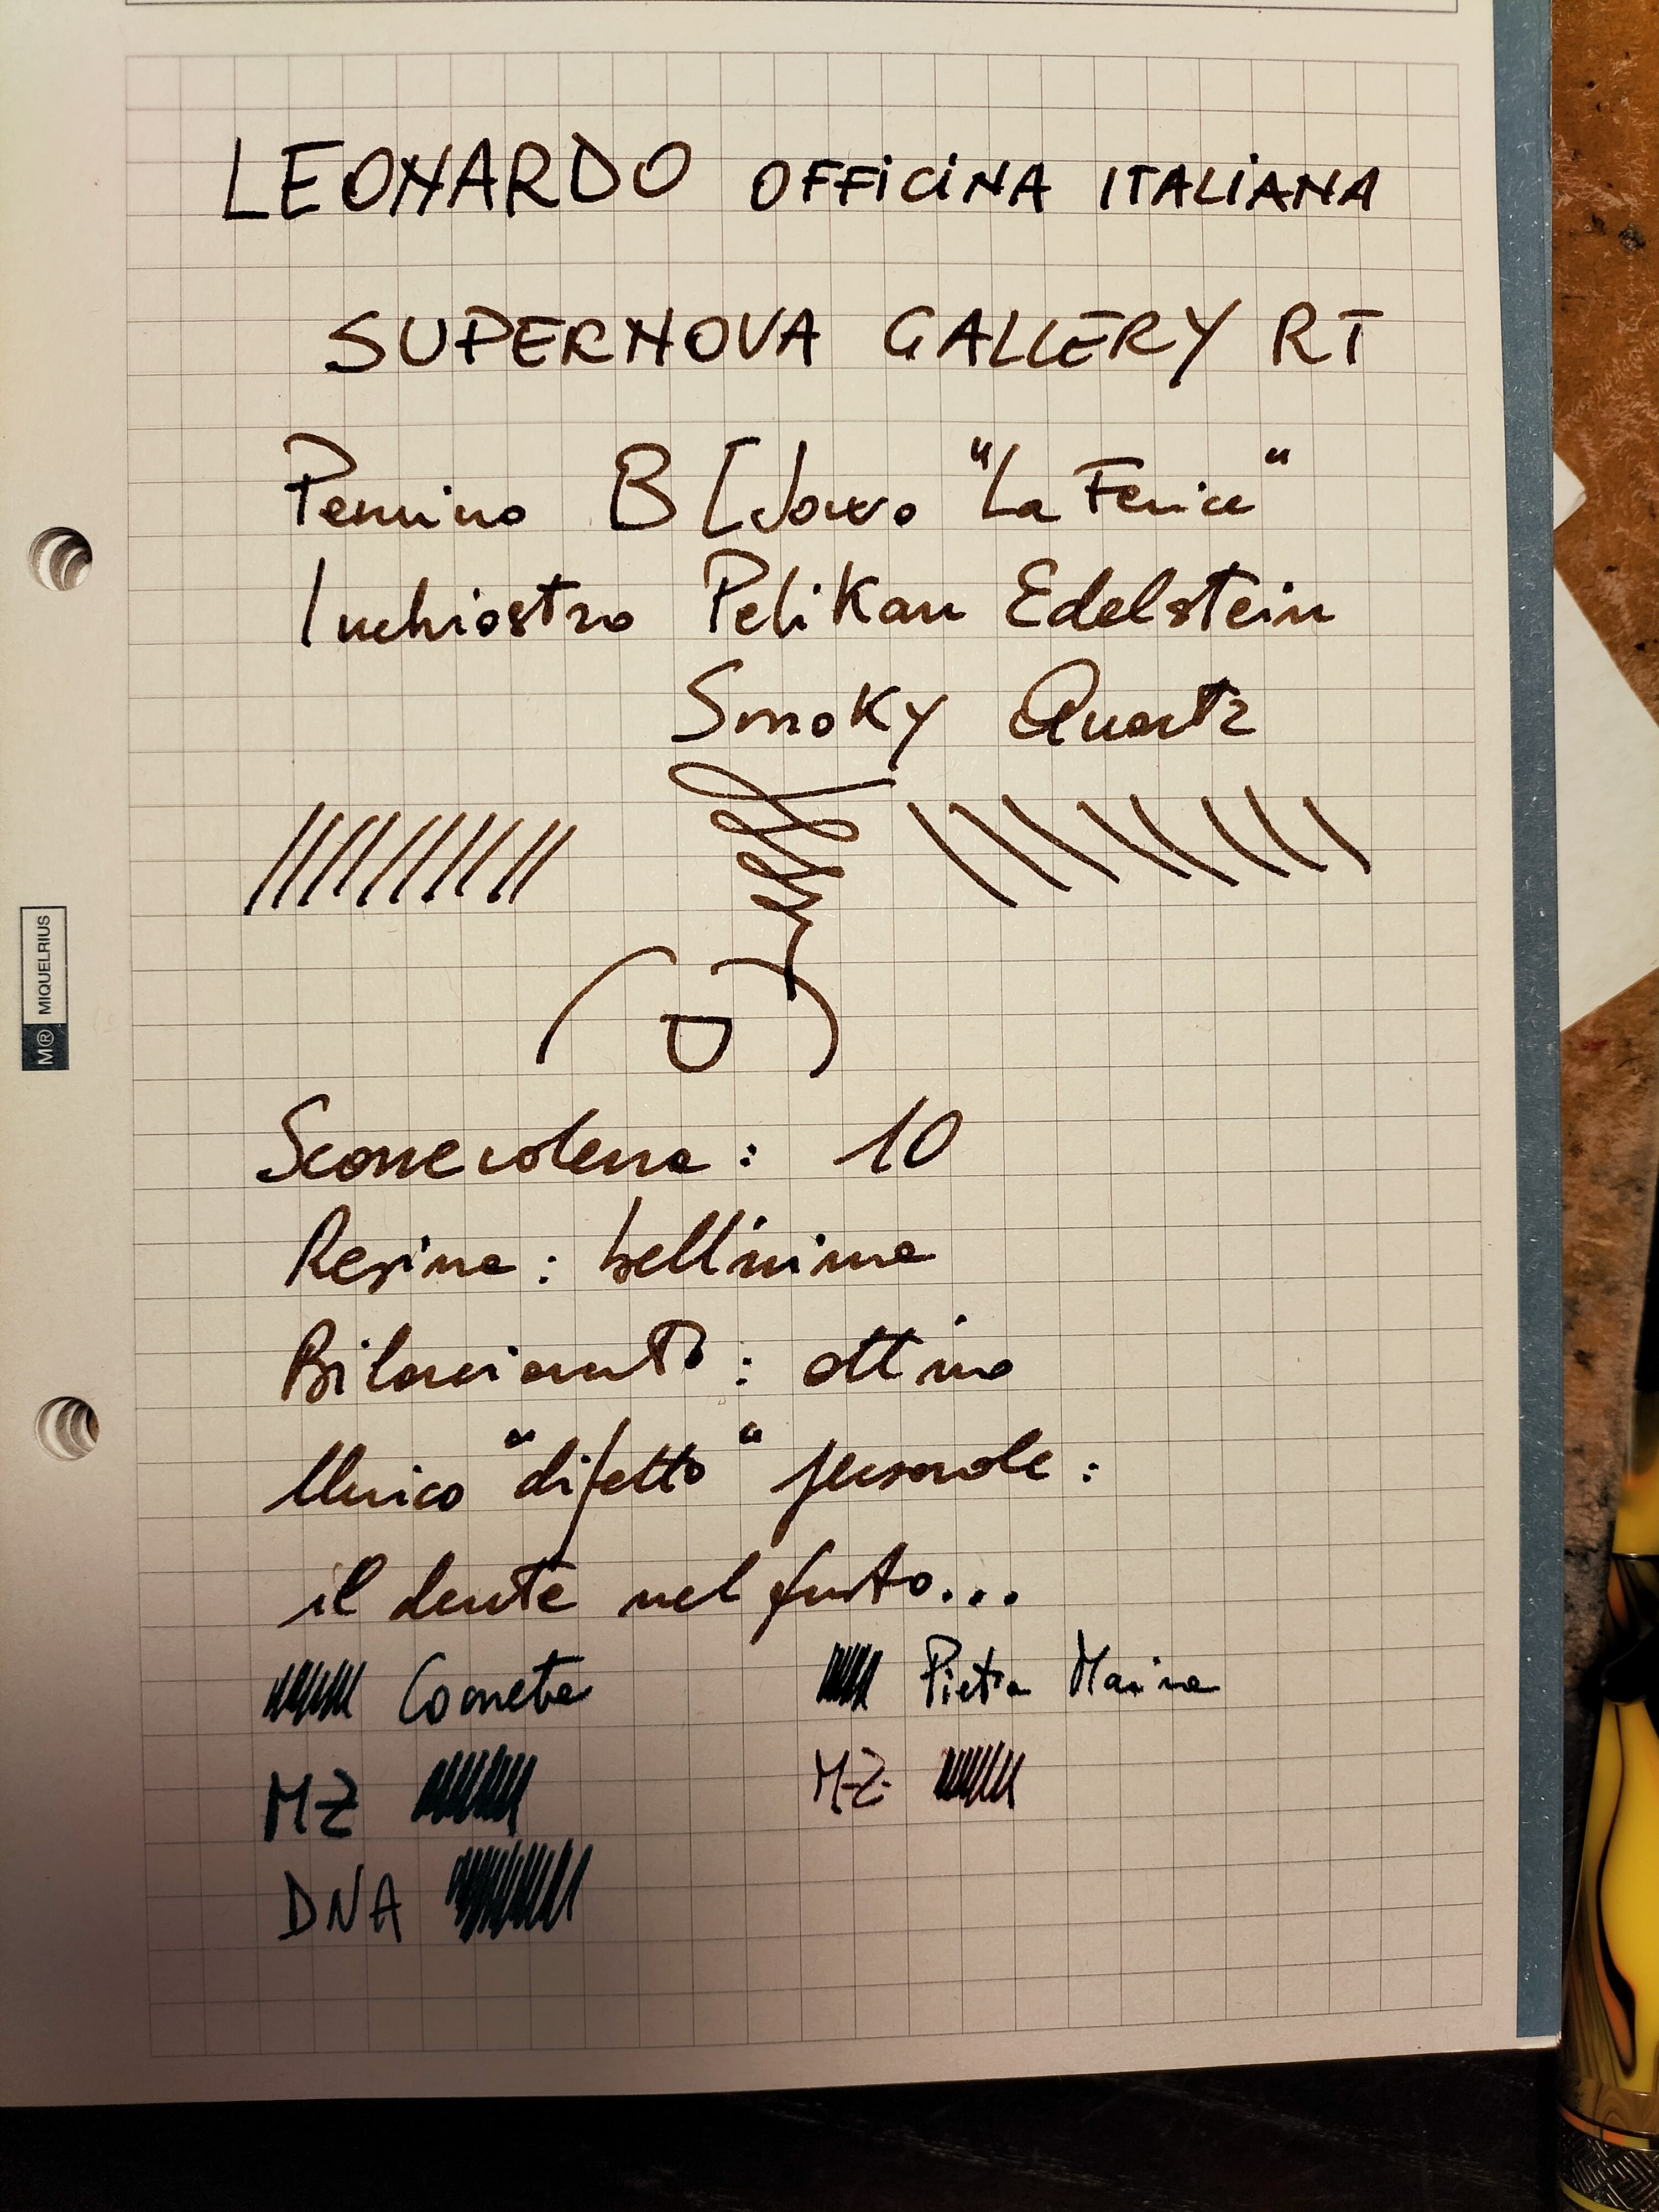 LEONARDO OFFICINA ITALIANA
SUPERNOVA GALLERY RT
Pennino B [Jowo "La Fenice"
Inchiostro Pelikan Edelstein
Smoky Quartz
Scorrevolezza: 10
Resina: bellissima
Bilanciamento: ottimo
Unico "difetto" personale:
il dente nel fusto...
Cometa
Pietra Marina
MZ
MZ
DNA
M® MIQUELRIUS